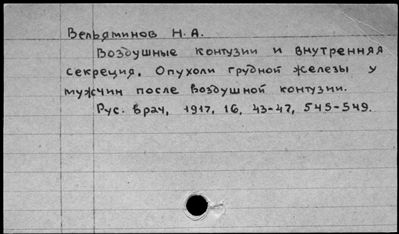 Вельяминов Н.А.
Воздушные контузии и внутренняя
секреция. Опухоли грудной железы у
мужчин после воздушной контузии.
Рус. врач, 1917, 16, 43-47, 545-549.